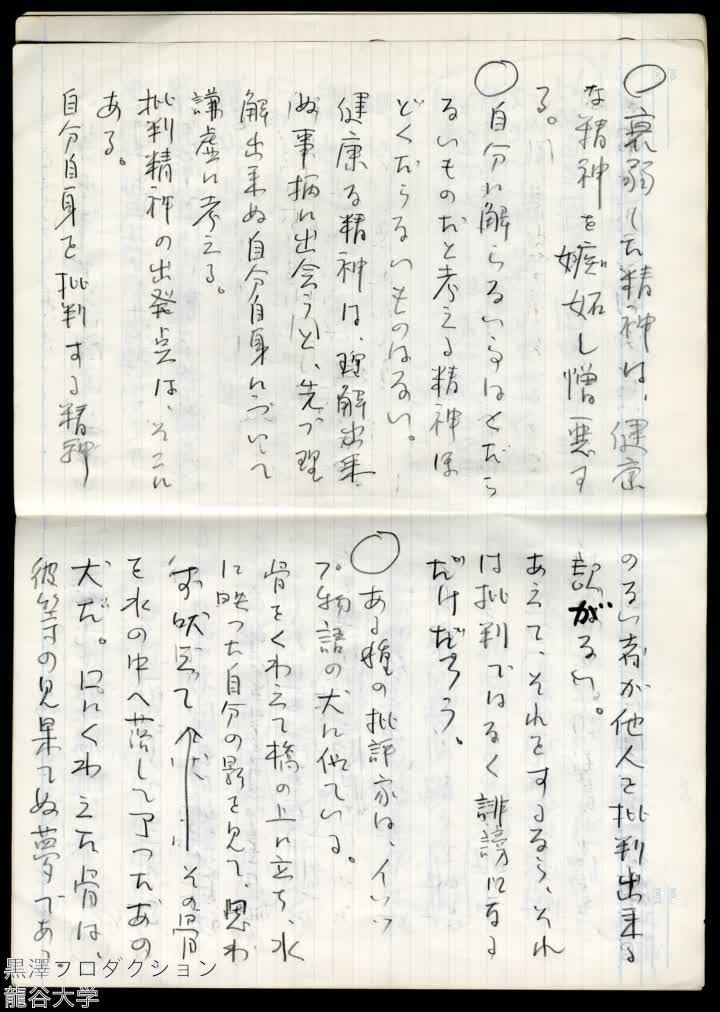 ○衰弱した精神は、健康
な精神を嫉妬し憎悪す
る。
○自分に解らないものはくだら
ないものだと考える精神ほ
どくだらないものはない。
健康な精神は、理解出来
ぬ事柄に出会うと、先づ理
解出来ぬ自分自身について
謙虚に考える。
批判精神の出発点は、そこに
ある。
自分自身を批判する精神
のない者が他人を批判出来る
訳がない。
あえて、それをするなら、それ
は批判ではなく誹謗になる
だけだろう。
○ある種の批評家は、イソッ
プ物語の犬に似ている。
骨をくわえて橋の上に立ち、水
に映った自分の影を見て、思わ
ず吠えて その骨
を水の中へ落して了ったあの
犬だ。口にくわえた骨は、
彼等の見果てぬ夢である。
黒澤プロダクション
龍谷大学